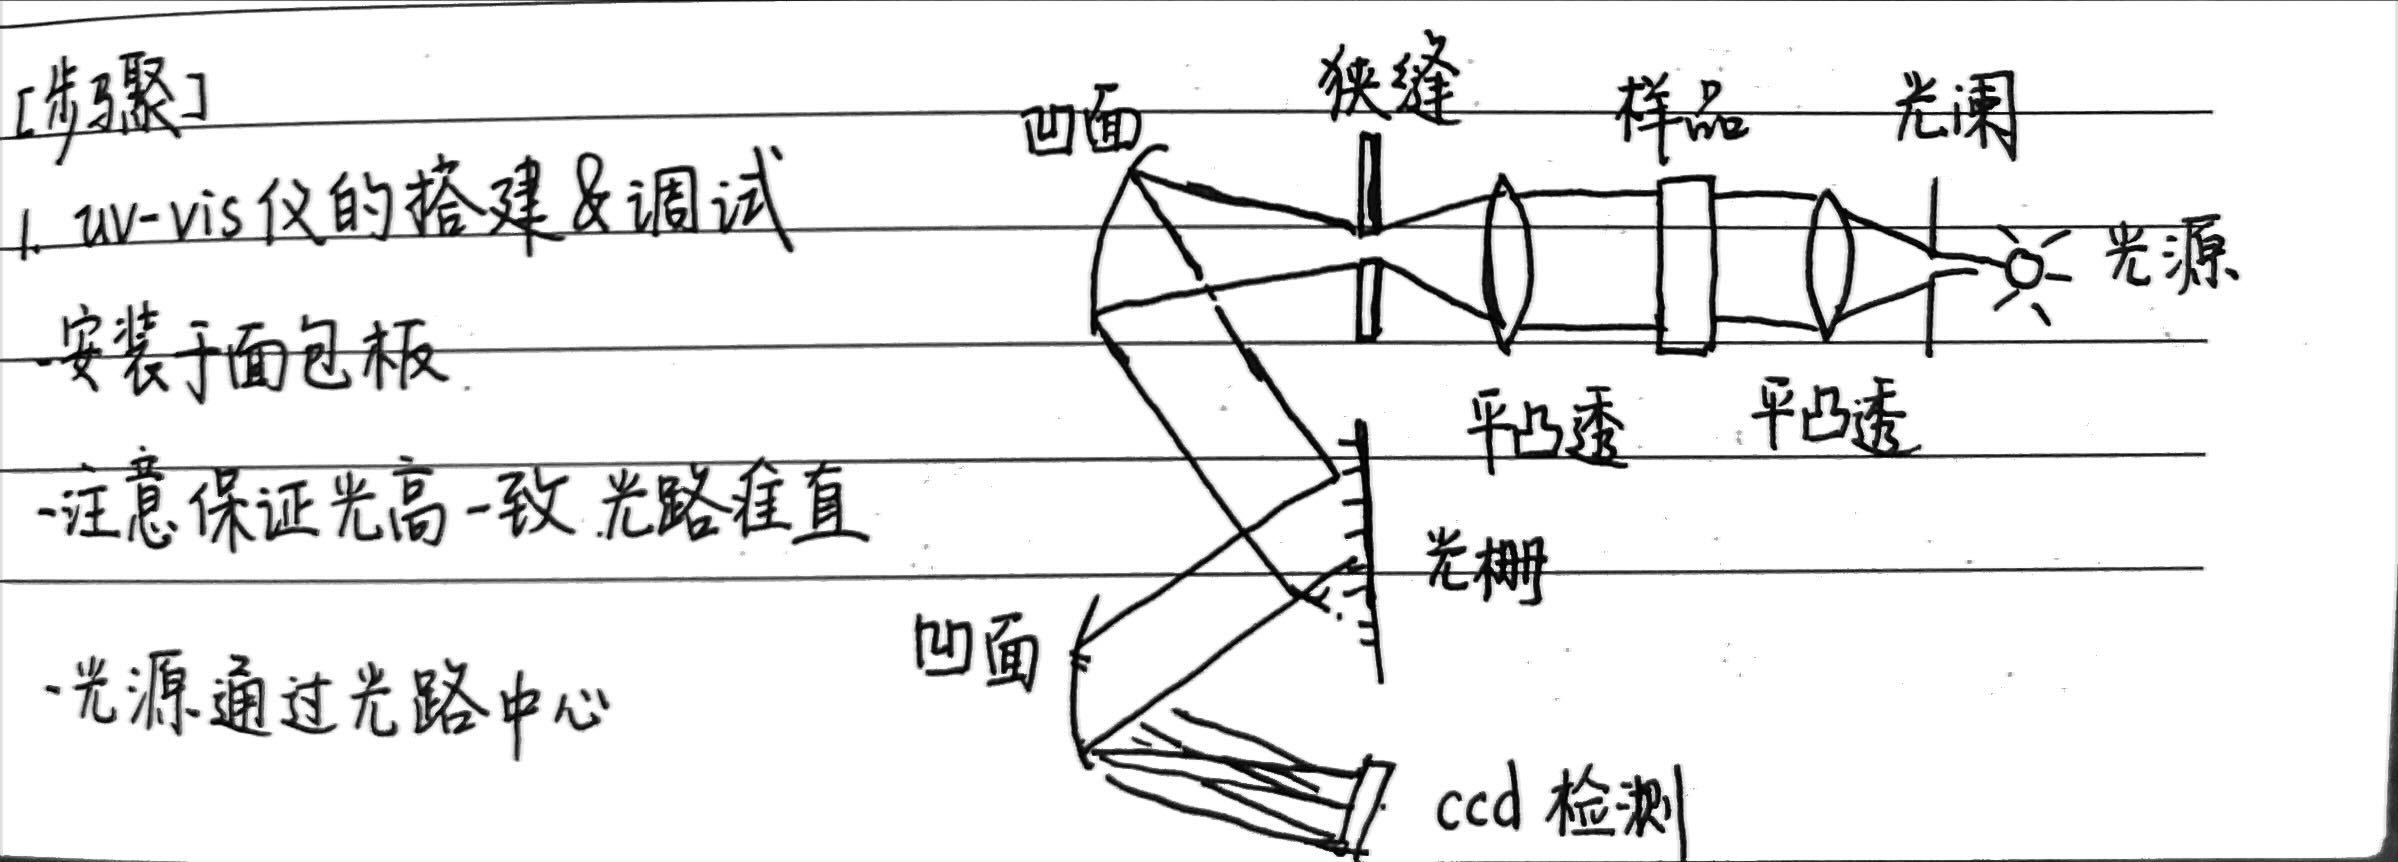 [步骤]
1. uv-vis仪的搭建&调试
-安装于面包板
-注意保证光高一致 光路准直
-光源通过光路中心
凹面
狭缝
样品
光阑
光源
平凸透
平凸透
光栅
凹面
ccd 检测